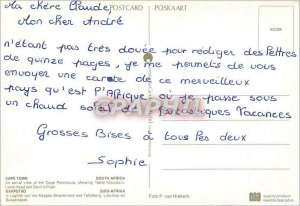 Ma chère Claude,
Mon cher André
POSTCARD POSKAART
n'étant pas très douée pour rédiger des lettres
de quinze pages, je me permets de vous
envoyer une carte de ce merveilleux
pays qu'est l'Afrique où je passe sous
un chaud soleil de fantastiques Vacances
Grosses Bises à tous les deux
Sophie
CAPE TOWN SOUTH AFRICA
An aerial view of the Cape Peninsula showing Table Mountain,
Lionshead and Devil's Peak.
KAAPSTAD SUID-AFRIKA
'n Lugfoto van die Kaapse Skiereiland met Tafelberg, Leeukop en
Duiwelspiek.
Foto P. van Niekerk